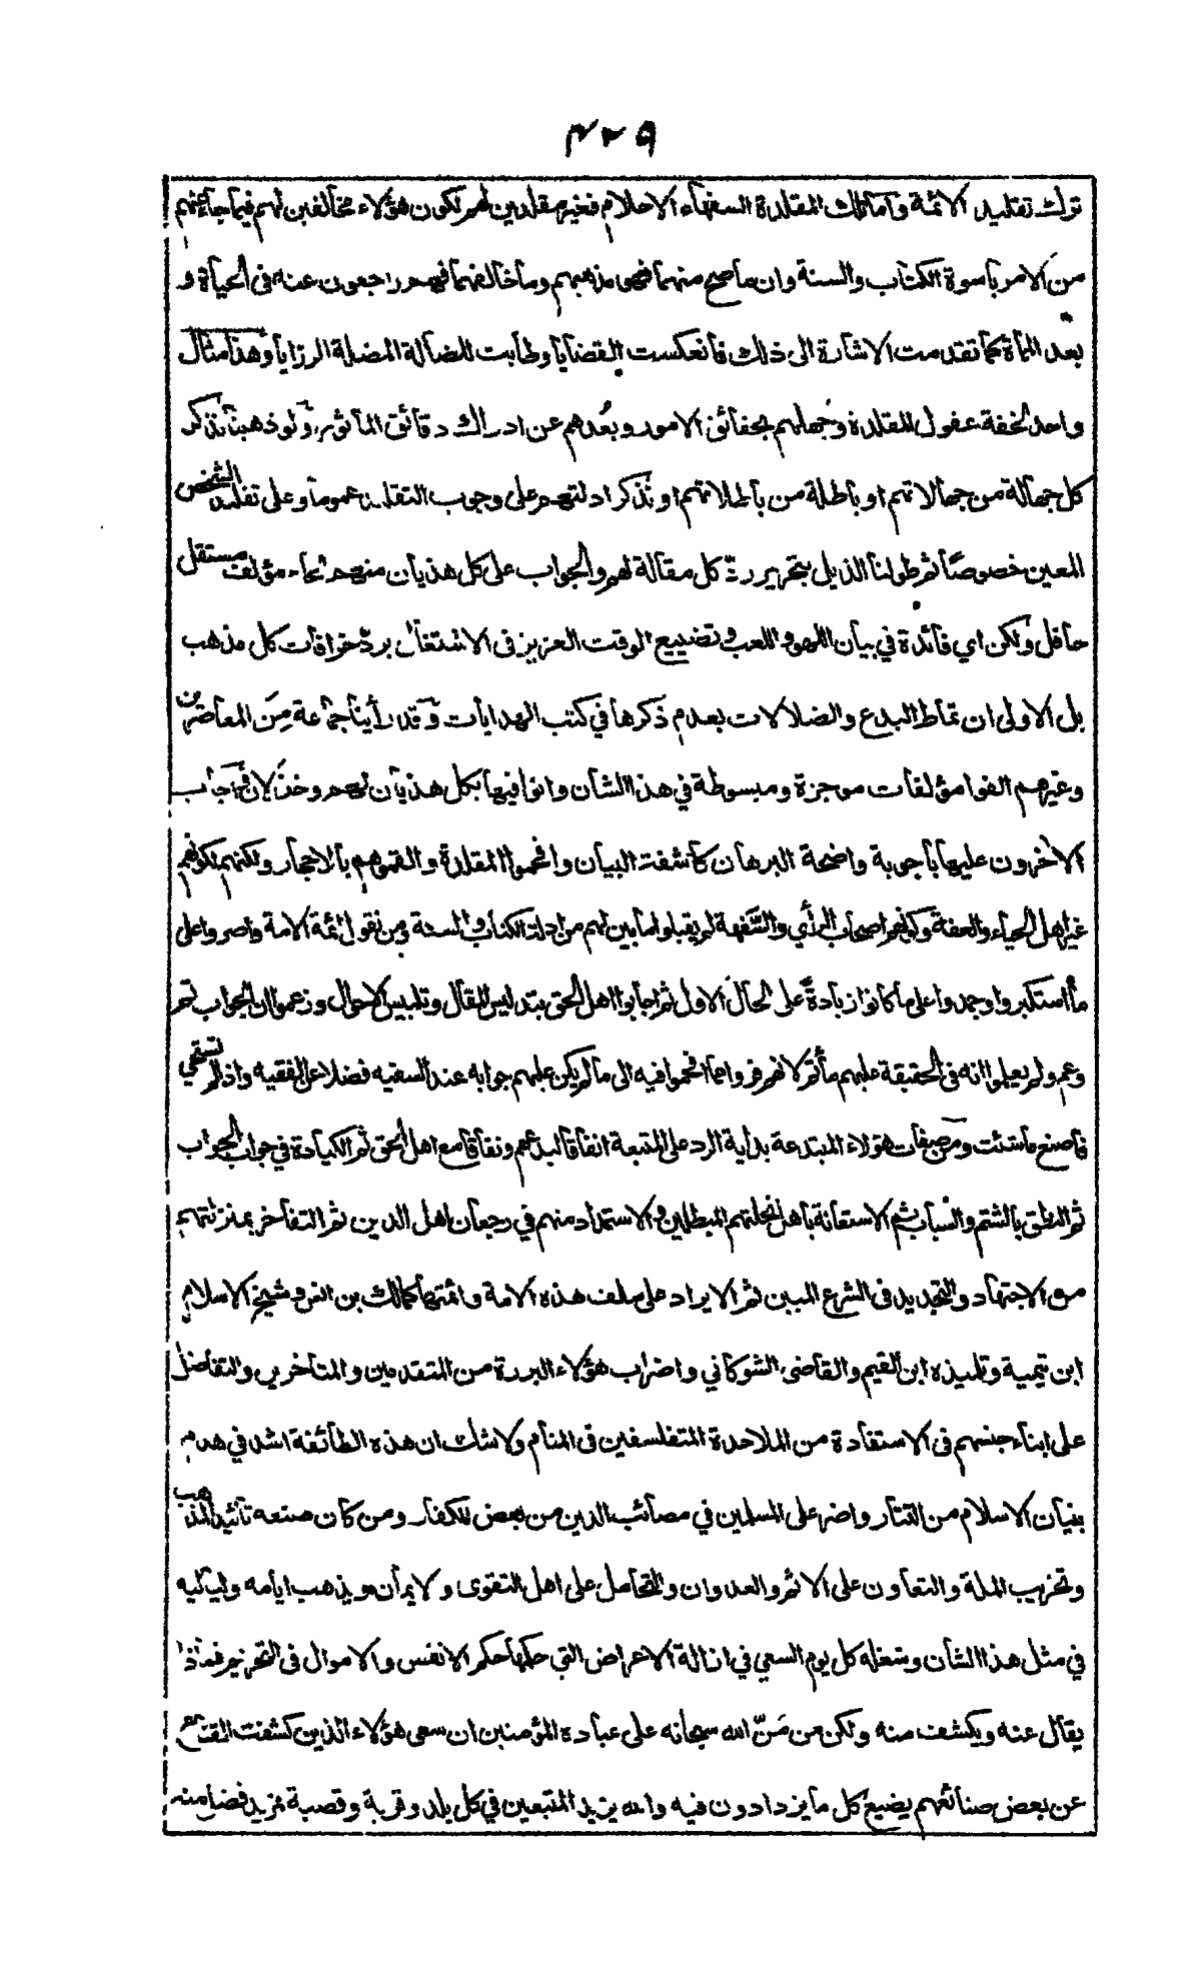 ٤٢٩
ترك تقليد الائمة وآما اولئك المقلدة السفهاء الاحلام فغير مقلدين لهم لكون هؤلاء مخالفين لهم فيما جاء عنهم
من الامر باسوة الكتاب والسنة وان ما صح منهما فهو مذهبهم وما خالفهما فهم راجعون عنه في الحياة و
بعد المماة كما تقدمت الاشارة الى ذلك فانعكست القضايا وطابت للضالة المضلة الرزايا وهذا مثال
واحد لخفة عقول المقلدة وجهلهم بحقائق الامور وبُعدهم عن ادراك دقائق المأثور ولو ذهبنا نذكر
كل جهالة من جهالاتهم او باطلة من بطالاتهم او نذكر ادلتهم على وجوب التقليد عموما وعلى تقليد الشخص
المعين خصوصًا ثم طولنا الذيل بتحرير ردّ كل مقالة لهم والجواب على كل هذيان منهم لجاء مؤلف مستقل
حافل ولكن اي فائدة في بيان اللهو واللعب وتضييع الوقت العزيز في الاشتغال بردّ خرافات كل مذهب
بل الاولى ان تماط البدع والضلالات بعدم ذكرها في كتب الهدايات وقد رأينا جماعة مِنَ المعاصرين
وغيرهم الفوا مؤلفات موجزة ومبسوطة في هذا الشأن واتوا فيها بكل هذيان لهم وخذلان فاجاب
الآخرون عليها باجوبة واضحة البرهان كاشفة البيان وافحموا المقلدة والقموهم بالاحجار ولكنهم لكونهم
غير اهل الحياء والعفة وكونهم اصحاب الرأي والسَّفَهة لم يقبلوا ما بين لهم من ادلة الكتاب والسنة ومن نقول ائمة الامة واصروا على
ما استكبروا وجمدوا على ما كانوا زيادةً على الحال الاول ثم اجابوا اهل الحق بتدليس المقال وتلبيس الاحوال وزعموا ان الجواب تم
وعم ولم يعلموا انه في الحقيقة عليهم ما تم لانهم فروا مما افحموا فيه الى ما لم يكن عليهم جوابه عند السفيه فضلا عن الفقيه واذا لم تستحي
فاصنع ما شئت ومن صيغات هؤلاء المبتدعة بداية الرد على المتبعة انفاقا لبدعهم ونفاقا مع اهل الحق ثم الكيادة في جواب الجواب
ثم النطق بالشتم والسباب ثم الاستعانة باهل نحلتهم المبطلين والاستمداد منهم في رجعان اهل الدين ثم التفاخر بمنزلتهم
من الاجتهاد والتجديد في الشرع المبين ثم الايراد على سلف هذه الامة وائمتها كمالك بن انس وشيخ الاسلام
ابن تيمية وتلميذه ابن القيم والقاضى الشوكاني واضراب هؤلاء البررة من المتقدمين والمتاخرين والتفاضل
على ابناء جنسهم في الاستفادة من الملاحدة المتفلسفين في المنام ولا شك ان هذه الطائفة اشد في هدم
بنيان الاسلام من التتار واضر على المسلمين في مصائب الدين من بعض الكفار ومن كان صنعه تائيد المذهب
وتخريب الملة والتعاون على الاثم والعدوان والتحامل على اهل التقوى والايمان ويذهب ايامه ولياليه
في مثل هذا الشان وشغله كل يوم السعي في ازالة الاعراض التي حكمها حكم الانفس والاموال في التحريم فماذا
يقال عنه ويكشف منه ولكن من مَنّ الله سبحانه على عباده المؤمنين ان سعى هؤلاء الذين كشفت القناع
عن بعض صنائعهم يضيع كل ما يزدادون فيه والله يزيد المتبعين في كل بلد وقرية وقصبة مزيد فضل منه